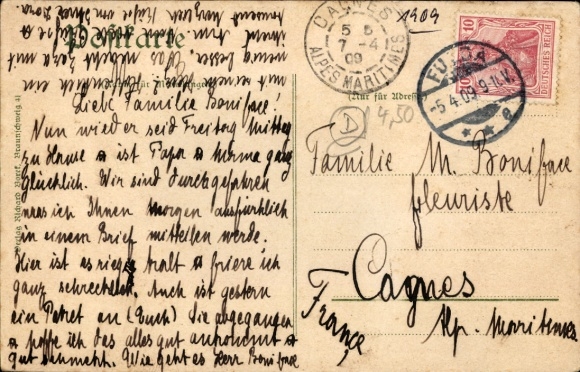 Postkarte
1909
CAGNES
5 5
7 -4
09
ALPES MARITIMES
10
10
DEUTSCHES REICH
FULDA
-5.4.09.9-11.V.
(Nur für Adresse)
D
4,50
Verlag Richard Borek, Braunschweig
Liebe Familie Boniface!
Nun wieder seid Freitag Mittag
zu Hause ist Papa Herma ganz
Glücklich. Wir sind durchgefahren
was ich Ihnen Morgen ausführlich
in einem Brief mitteilen werde.
Hier ist es riesig kalt friere ich
ganz schrecklich. Auch ist gestern
ein Paket an (Euch) Sie abgegangen
hoffe ich das alles gut ankommt
gut schmeckt. Wie geht es Herr Boniface
Familie M. Boniface
fleuriste
Cagnes
Alp. Maritimes
France